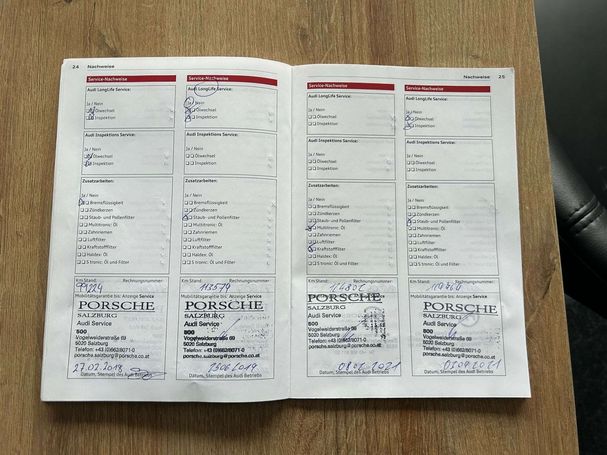 24 Nachweise
Service-Nachweise
Audi LongLife Service:
Ja / Nein
Ölwechsel
Inspektion
Audi Inspektions Service:
Ja / Nein
Ölwechsel
Inspektion
Zusatzarbeiten:
Ja / Nein
Bremsflüssigkeit
Zündkerzen
Staub- und Pollenfilter
Multitronic: Öl
Zahnriemen
Luftfilter
Kraftstofffilter
Haldex: Öl
S tronic: Öl und Filter
Km Stand: Rechnungsnummer:
99224
Mobilitätsgarantie bis: Anzeige Service
PORSCHE
SALZBURG
Audi Service
500
Vogelweiderstraße 69
5020 Salzburg
Telefon: +43 (0)662/8071-0
porsche.salzburg@porsche.co.at
27.02.2018
Datum, Stempel des Audi Betriebs
Service-Nachweise
Audi LongLife Service:
Ja / Nein
Ölwechsel
Inspektion
Audi Inspektions Service:
Ja / Nein
Ölwechsel
Inspektion
Zusatzarbeiten:
Ja / Nein
Bremsflüssigkeit
Zündkerzen
Staub- und Pollenfilter
Multitronic: Öl
Zahnriemen
Luftfilter
Kraftstofffilter
Haldex: Öl
S tronic: Öl und Filter
Km Stand: Rechnungsnummer:
113579
Mobilitätsgarantie bis: Anzeige Service
PORSCHE
SALZBURG
Audi Service
500
Vogelweiderstraße 69
5020 Salzburg
Telefon: +43 (0)662/8071-0
porsche.salzburg@porsche.co.at
Datum, Stempel des Audi Betriebs
Nachweise 25
Service-Nachweise
Audi LongLife Service:
Ja / Nein
Ölwechsel
Inspektion
Audi Inspektions Service:
Ja / Nein
Ölwechsel
Inspektion
Zusatzarbeiten:
Ja / Nein
Bremsflüssigkeit
Zündkerzen
Staub- und Pollenfilter
Multitronic: Öl
Zahnriemen
Luftfilter
Kraftstofffilter
Haldex: Öl
S tronic: Öl und Filter
Km Stand: Rechnungsnummer:
PORSCHE
SALZBURG
Audi Service
500
Vogelweiderstraße 69
5020 Salzburg
Telefon: +43 (0)662/8071-0
porsche.salzburg@porsche.co.at
Datum, Stempel des Audi Betriebs
Service-Nachweise
Audi LongLife Service:
Ja / Nein
Ölwechsel
Inspektion
Audi Inspektions Service:
Ja / Nein
Ölwechsel
Inspektion
Zusatzarbeiten:
Ja / Nein
Bremsflüssigkeit
Zündkerzen
Staub- und Pollenfilter
Multitronic: Öl
Zahnriemen
Luftfilter
Kraftstofffilter
Haldex: Öl
S tronic: Öl und Filter
Km Stand: Rechnungsnummer:
Mobilitätsgarantie bis: Anzeige Service
PORSCHE
SALZBURG
Audi Service
500
Vogelweiderstraße 69
5020 Salzburg
Telefon: +43 (0)662/8071-0
porsche.salzburg@porsche.co.at
Datum, Stempel des Audi Betriebs